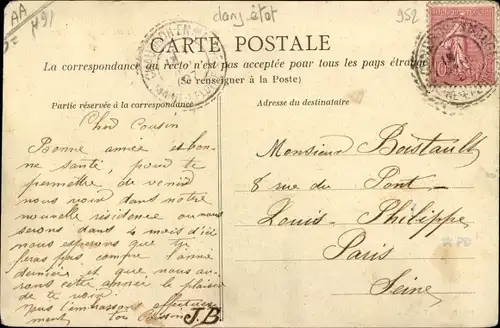 AA
dans état
952
CARTE POSTALE
La correspondance au recto n'est pas acceptée pour tous les pays étran
(Se renseigner à la Poste)
Partie réservée à la correspondance
Adresse du destinataire
Cher Cousin
Bonne année et bon-
ne santé, pour te
permettre de venir
nous voir dans notre
nouvelle résidence ou nous
serons dans 4 mois d'ici
nous esperons que tu
feras pas comme l'année
derniere et que nous au-
rons cette année le plaisir
de te voir.
Nous t'embrassons affectueuse
ment ton Cousin J.B
Monsieur Boistault
8 rue du Pont
Louis-Philippe
Paris
Seine
10